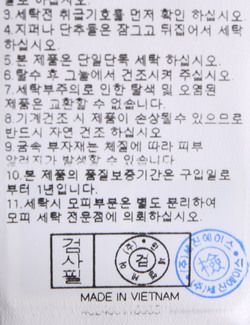 3.세탁전 취급기호를 먼저 확인 하십시오
4.지퍼나 단추들은 잠그고 뒤집어서 세탁
하십시오.
5.본 제품은 단일단독 세탁 하십시오
6.탈수 후 그늘에서 건조시켜 주십시오.
7.세탁부주의로 인한 탈색 및 오염된
제품은 교환할 수 없습니다.
8.기계건조 시 제품이 손상될수 있으므로
반드시 자연 건조 하십시오
9.금속 부자재는 체질에 따라 피부
알러지가 발생할 수 있습니다
10.본 제품의 품질보증기간은 구입일로
부터 1년입니다.
11.세탁시 모피부분은 별도 분리하여
모피 세탁 전문점에 의뢰하십시오.
검사필
검
檢
MADE IN VIETNAM